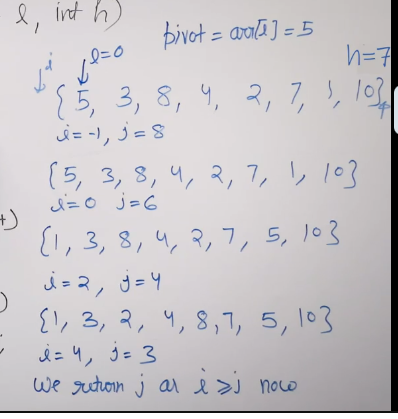 l, int h)
pivot = arr[l] = 5
i l=0 h=7
{5, 3, 8, 4, 2, 7, 1, 10}
i=-1, j=8
{5, 3, 8, 4, 2, 7, 1, 10}
i=0 j=6
{1, 3, 8, 4, 2, 7, 5, 10}
i=2, j=4
{1, 3, 2, 4, 8, 7, 5, 10}
i=4, j=3
We return j as i≥j now